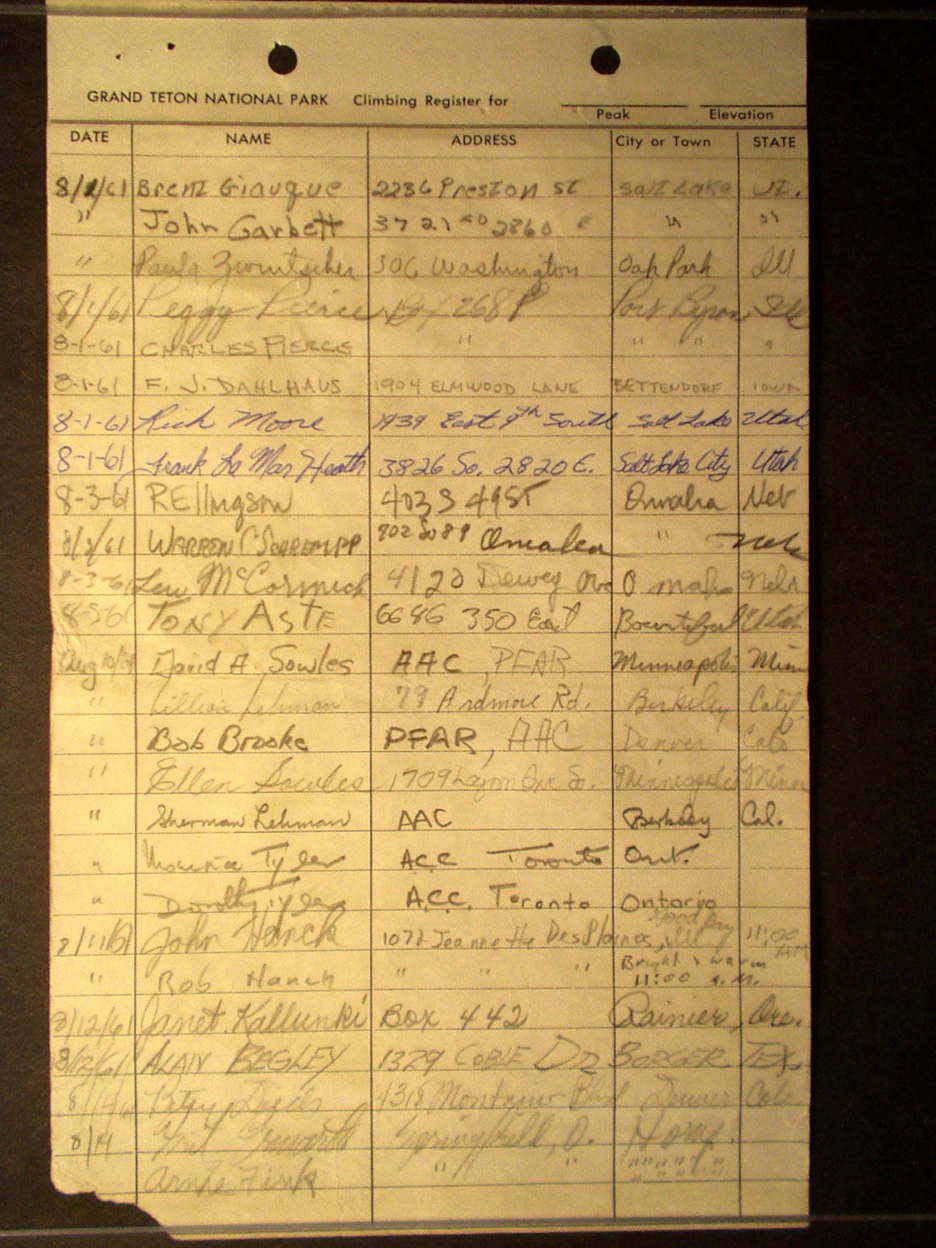 GRAND TETON NATIONAL PARK Climbing Register for
Peak Elevation
DATE NAME ADDRESS City or Town STATE
8/1/61 Brent Giauque 2236 Preston St Salt Lake Ut.
" John Garbett 37 21 so 2860 E " "
" Paula 306 Washington Oak Park Ill
8/1/61 Peggy Pierce Box 268 P Port Byron, Ill
8-1-61 CHARLES PIERCE " " " "
8-1-61 F. J. DAHLHAUS 1904 ELMWOOD LANE BETTENDORF IOWA
8-1-61 Rick Moore 1939 East 9th South Salt Lake Utah
8-1-61 Frank La Mar Heath 3826 So. 2820 E. Salt Lake City Utah
8-3-61 REllingson 403 S 49 ST Omaha Neb
8/3/61 WARREN C SCHREMPP 902 So 89 Omaha "
8-3-61 Lew McCormick 4120 Dewey Ave Omaha Nebr
8-5-61 TONY ASTE 6686 350 East Bountiful Utah
Aug 10/61 David A. Sowles AAC, PFAR Minneapolis Minn
" Lillian Lehman 79 Ardmore Rd. Berkeley Calif
" Bob Brooke PFAR, AAC Denver Colo
" Ellen Sowles 1709 Ave So. Minneapolis Minn
" Sherman Lehman AAC Berkeley Cal.
" Maurice Tyler ACC Toronto Ont.
" Dorothy Tyler A.C.C. Toronto Ontario
8/11/61 John Hanck 1077 Jeannette Des Plaines, Ill Good Day 11:00 AM
" Rob Hanck " " " Bright & warm
11:00 a.m.
8/12/61 Janet Kallunki Box 442 Rainier, Ore.
8/12/61 ALAN BEGLEY 1329 COBLE DR BORGER TEX.
8/14/61 Betsy 4318 Montview Blvd Denver Colo.
8/14 Springfield, O. Home.
Fink " " " " " " " "